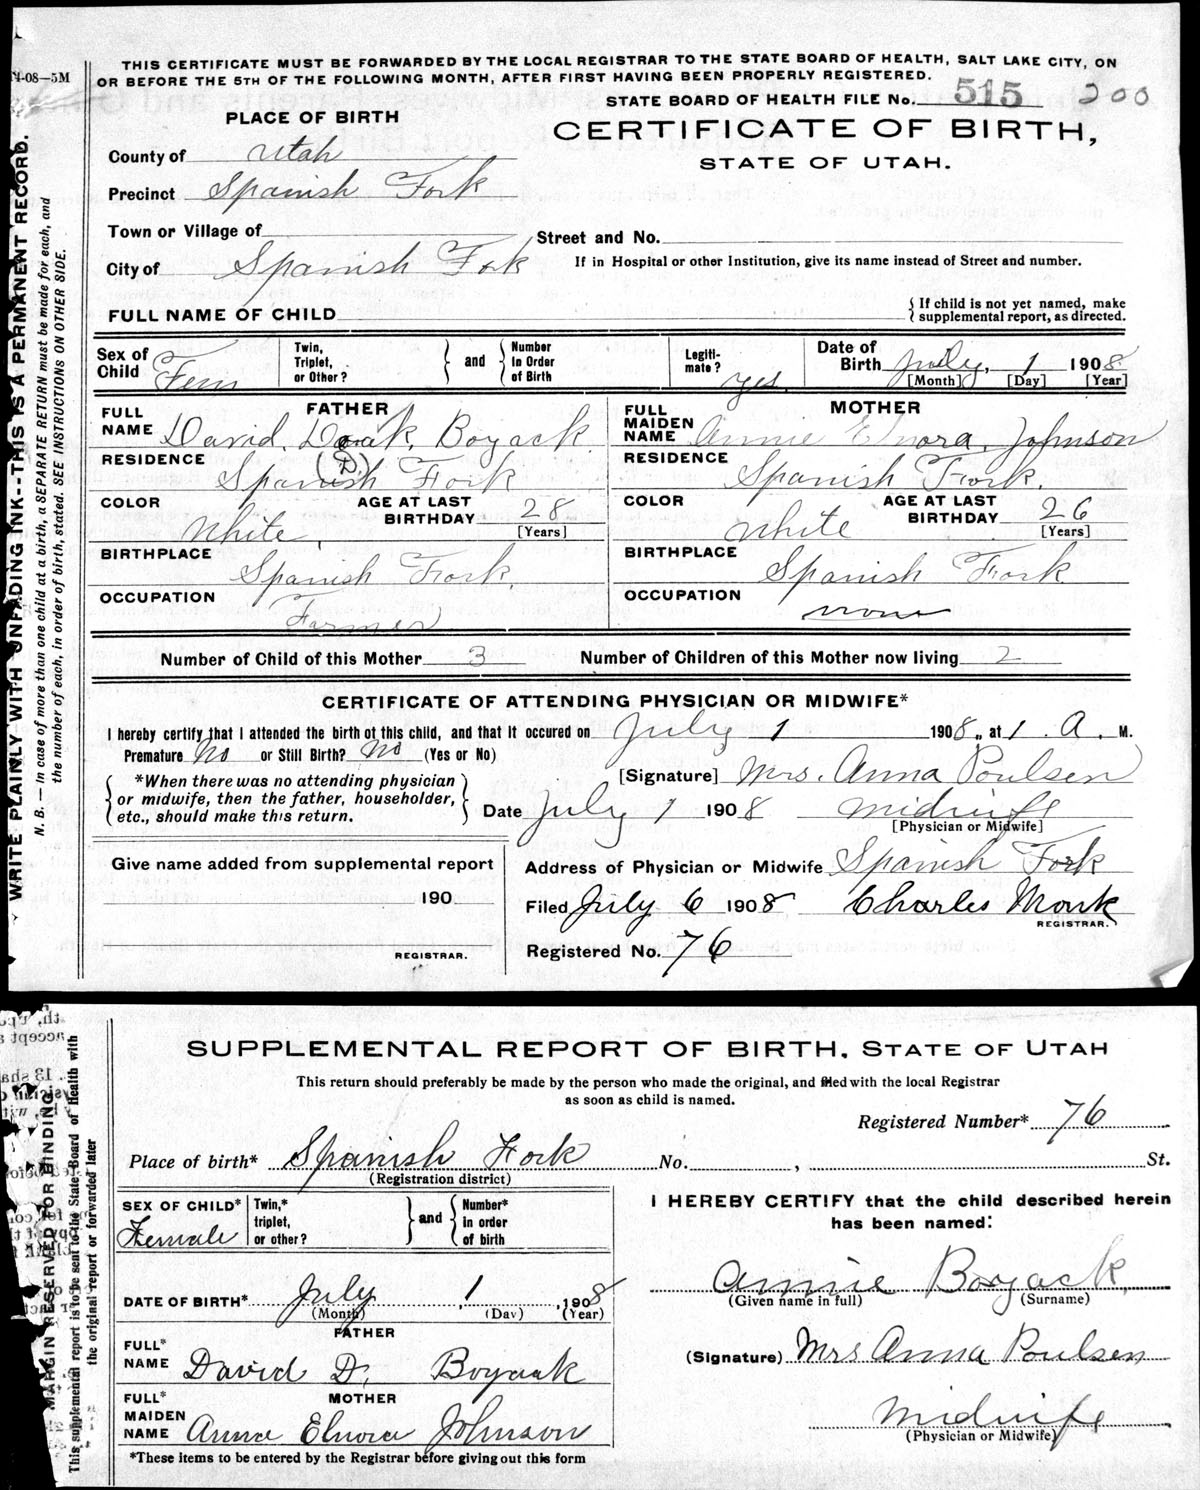 4-08—5M
THIS CERTIFICATE MUST BE FORWARDED BY THE LOCAL REGISTRAR TO THE STATE BOARD OF HEALTH, SALT LAKE CITY, ON
OR BEFORE THE 5TH OF THE FOLLOWING MONTH, AFTER FIRST HAVING BEEN PROPERLY REGISTERED.
STATE BOARD OF HEALTH FILE No. 515 200
PLACE OF BIRTH
CERTIFICATE OF BIRTH,
STATE OF UTAH.
County of Utah
Precinct Spanish Fork
Town or Village of
Street and No.
City of Spanish Fork
If in Hospital or other Institution, give its name instead of Street and number.
FULL NAME OF CHILD
{ If child is not yet named, make supplemental report, as directed.
Sex of Child Fem
Twin, Triplet, or Other? } and { Number in Order of Birth
Legiti-mate? yes
Date of Birth July, 1 1908
[Month] [Day] [Year]
FATHER
FULL NAME David. Doak. Boyack
(D.)
RESIDENCE Spanish Fork
COLOR White.
AGE AT LAST BIRTHDAY 28 [Years]
BIRTHPLACE Spanish Fork.
OCCUPATION Farmer
MOTHER
FULL MAIDEN NAME Annie Elnora. Johnson
RESIDENCE Spanish Fork.
COLOR White
AGE AT LAST BIRTHDAY 26 [Years]
BIRTHPLACE Spanish Fork
OCCUPATION none
Number of Child of this Mother 3 Number of Children of this Mother now living 2
CERTIFICATE OF ATTENDING PHYSICIAN OR MIDWIFE*
I hereby certify that I attended the birth of this child, and that it occured on July 1 1908, at 1. A. M.
Premature No or Still Birth? No (Yes or No)
[Signature] Mrs. Anna Poulsen
{ *When there was no attending physician or midwife, then the father, householder, etc., should make this return. }
Date July 1 1908 Midwife
[Physician or Midwife]
Give name added from supplemental report
190
REGISTRAR.
Address of Physician or Midwife Spanish Fork
Filed July 6 1908 Charles Monk
REGISTRAR.
Registered No. 76
WRITE PLAINLY WITH UNFADING INK--THIS IS A PERMANENT RECORD.
N. B. — In case of more than one child at a birth, a SEPARATE RETURN must be made for each, and
the number of each, in order of birth, stated. SEE INSTRUCTIONS ON OTHER SIDE.
SUPPLEMENTAL REPORT OF BIRTH, STATE OF UTAH
This return should preferably be made by the person who made the original, and filed with the local Registrar
as soon as child is named.
Registered Number* 76
Place of birth* Spanish Fork No. , St.
(Registration district)
SEX OF CHILD* Female
Twin,* triplet, or other? } and { Number* in order of birth
I HEREBY CERTIFY that the child described herein
has been named:
DATE OF BIRTH* July , 1 , 1908
(Month) (Day) (Year)
Annie Boyack
(Given name in full) (Surname)
FATHER
FULL* NAME David D. Boyack
(Signature) Mrs Anna Poulsen
MOTHER
FULL* MAIDEN NAME Annie Elnora Johnson
Midwife
(Physician or Midwife)
*These items to be entered by the Registrar before giving out this form
MARGIN RESERVED FOR BINDING
This supplemental report is to be sent to the State Board of Health with
the original report or forwarded later